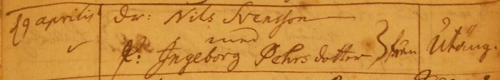 19 aprilis dr: Nils Svensson
med
p: Ingeborg Pehrs dotter } från Utäng.